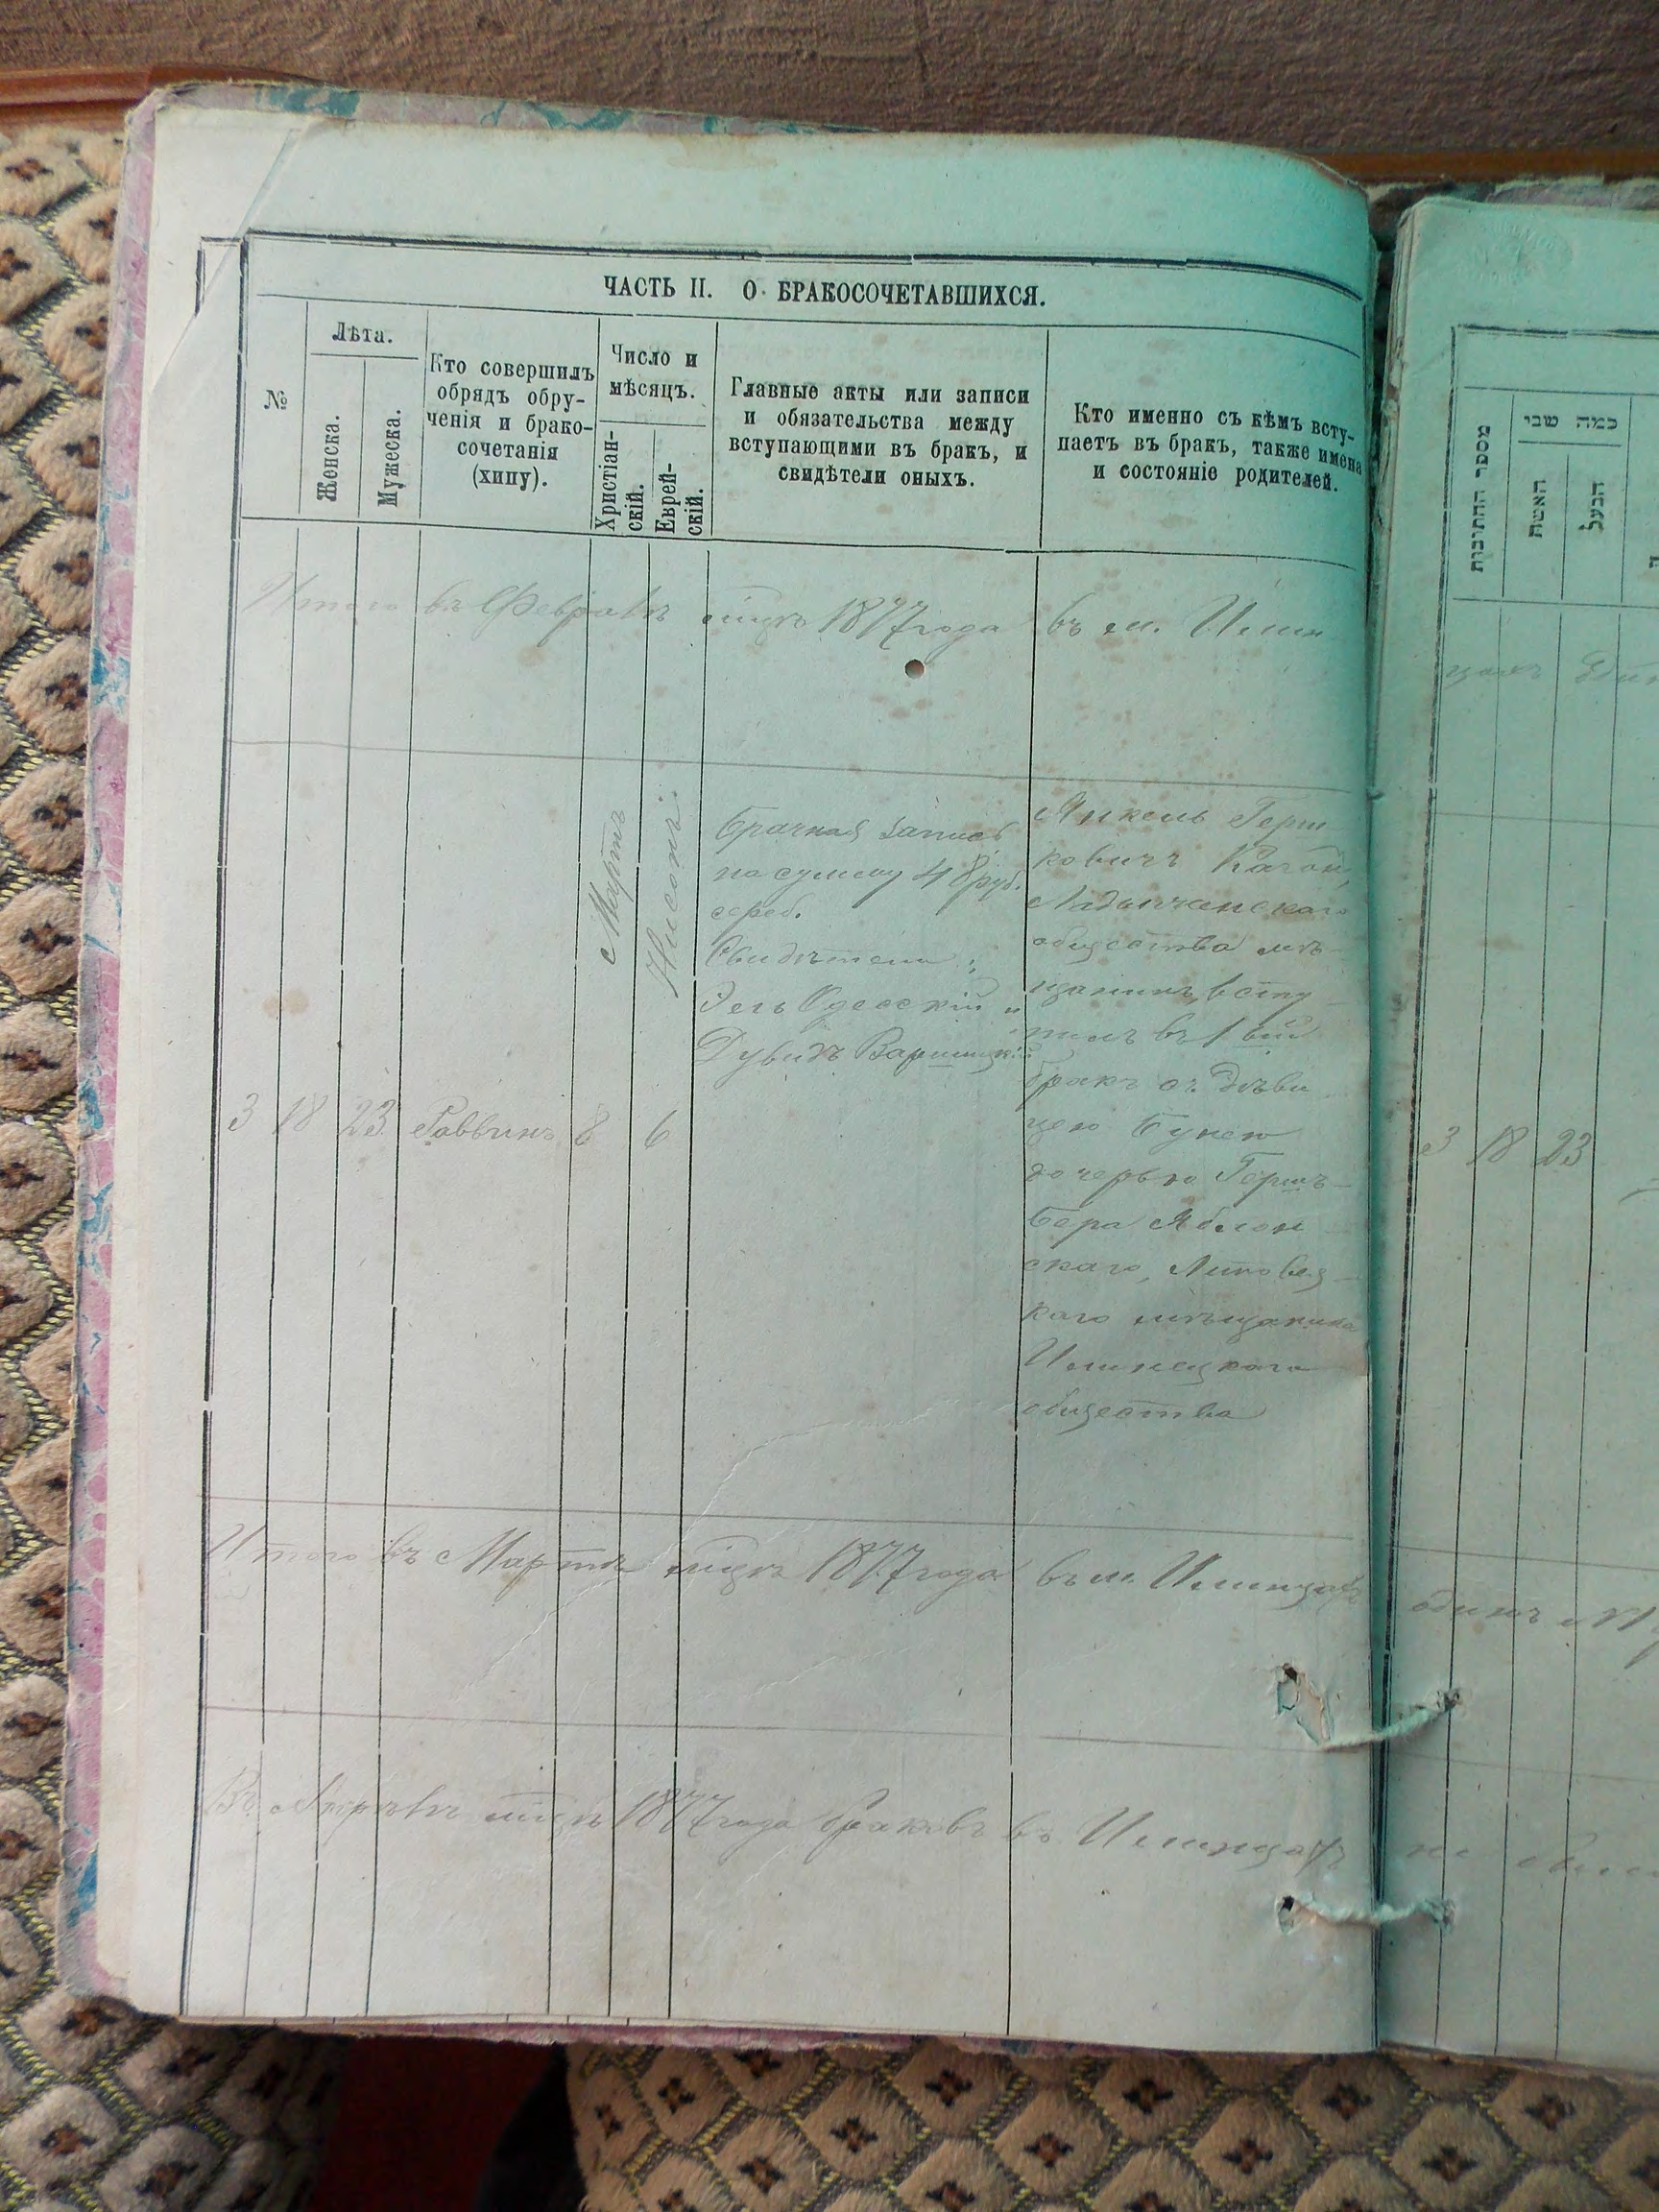 ЧАСТЬ II. О БРАКОСОЧЕТАВШИХСЯ.
№
Лѣта.
Женска.
Мужеска.
Кто совершилъ
обрядъ обру-
ченія и брако-
сочетанія
(хипу).
Число и
мѣсяцъ.
Христіан-
скій.
Еврей-
скій.
Главные акты или записи
и обязательства между
вступающими въ бракъ, и
свидѣтели оныхъ.
Кто именно съ кѣмъ всту-
паетъ въ бракъ, также имена
и состояніе родителей.
Итого въ Февралѣ мцѣ 1877 года въ м. Илин-
3 18 23 Раввинъ 8 6
Мартъ
Нисонъ
Брачная запись
на сумму 48 руб.
сереб.
Свидѣтели:
Одесскій и
Дувидъ
Янкель Герш-
ковичъ Каган,
Ладыженскаго
общества мѣ-
щанинъ, всту-
пилъ въ 1 вый
бракъ съ дѣви-
цею
дочерью Гершъ-
Бера Яблон-
скаго, Липовец-
каго мѣщанина
Илинецкаго
общества
Итого въ Мартѣ мцѣ 1877 года въ м. Илинцахъ
Въ Апрѣлѣ мцѣ 1877 года браковъ въ Илинцахъ
מספר החתונות
כמה שני
האשה
הבעל
цахъ
3 18 23
одинъ
не